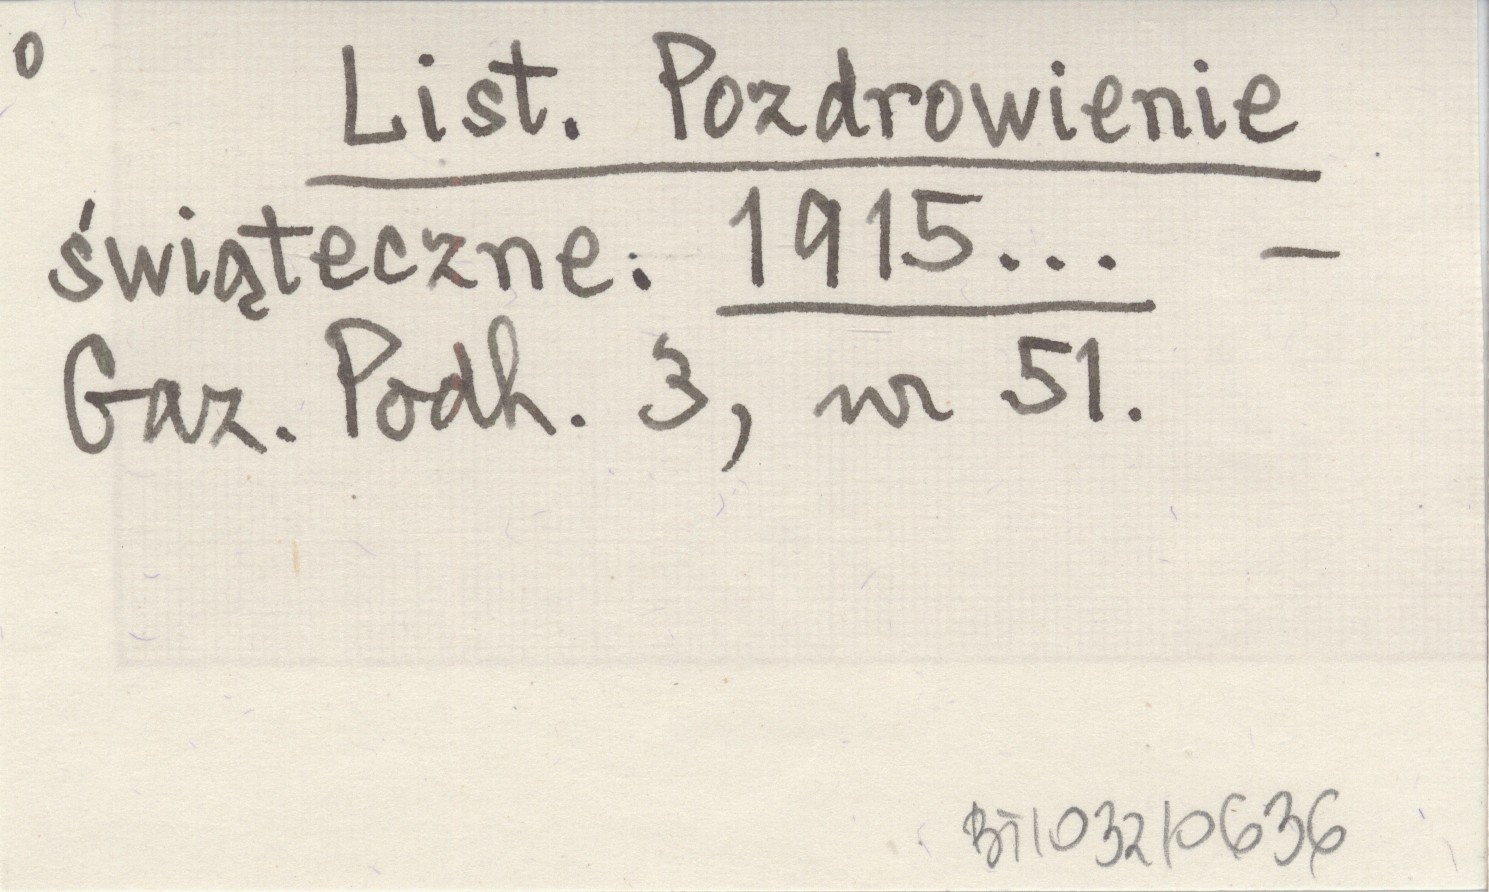 0
List. Pozdrowienie
świąteczne. 1915... –
Gaz. Podh. 3, nr 51.
BT/032/0636